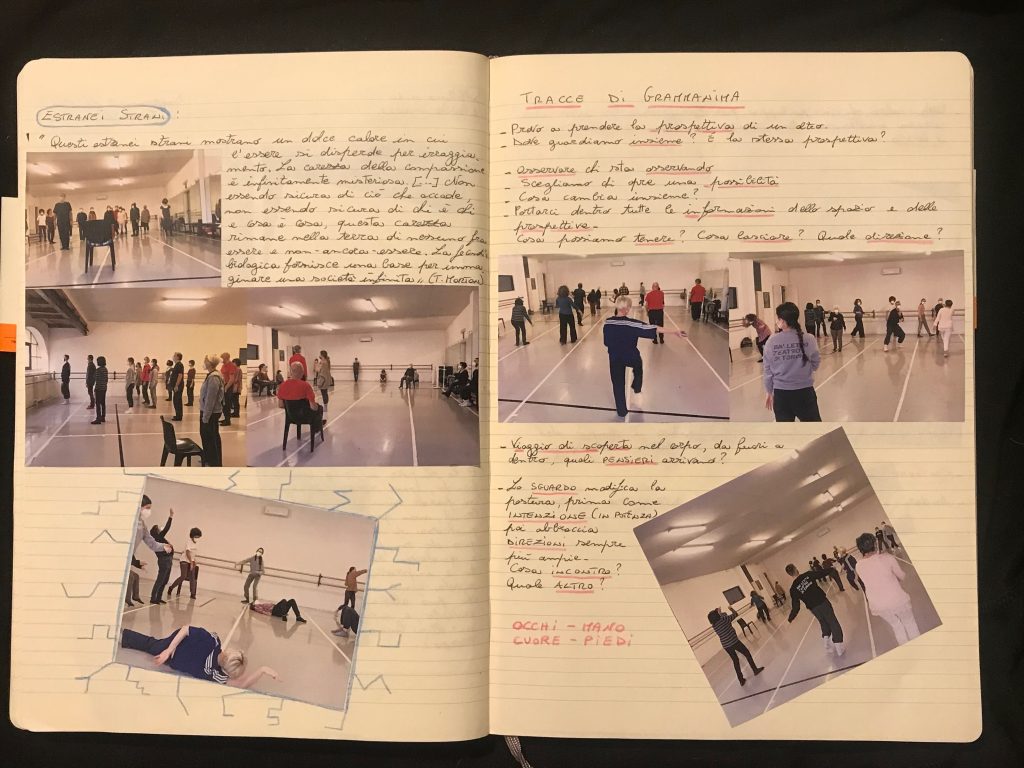 ESTRANEI STRANI:
" Questi estranei strani mostrano un dolce calore in cui
l'essere si disperde per irraggia-
mento. La carezza della compassione
è infinitamente misteriosa. [...] Non
essendo sicura di ciò che accade,
non essendo sicura di chi è chi
e cosa è cosa, questa carezza
rimane nella terra di nessuno fra
essere e non-ancora-essere. La
biologica fornisce una base per imma
ginare una società infinita" (T. MORTON)
TRACCE DI GRAMMANIMA
- Provo a prendere la prospettiva di un altro.
- Dove guardiamo insieme? È la stessa prospettiva?
- Osservare chi sta osservando
- Scegliamo di dire una possibilità
- Cosa cambia insieme?
- Portarci dentro tutte le informazioni dello spazio e delle
prospettive.
Cosa possiamo tenere? Cosa lasciare? Quale direzione?
BALLETTO
TEATRO
DI TORINO
- Viaggio di scoperta nel corpo, da fuori a
dentro, quali PENSIERI arrivano?
- Lo SGUARDO modifica la
postura, prima come
INTENZIONE (IN POTENZA)
poi abbraccia
DIREZIONI sempre
più ampie.
Cosa INCONTRO?
Quale ALTRO?
OCCHI - MANO
CUORE - PIEDI